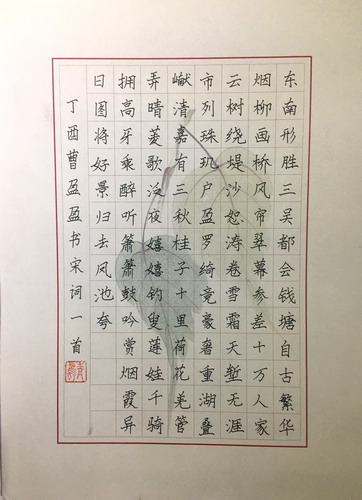 东南形胜三吴都会钱塘自古繁华
烟柳画桥风帘翠幕参差十万人家
云树绕堤沙怒涛卷雪霜天堑无涯
市列珠玑户盈罗绮竞豪奢重湖叠
巘清嘉有三秋桂子十里荷花羌管
弄晴菱歌泛夜嬉嬉钓叟莲娃千骑
拥高牙乘醉听箫箫鼓吟赏烟霞异
日图将好景归去风池夸
丁酉曹盈盈书宋词一首